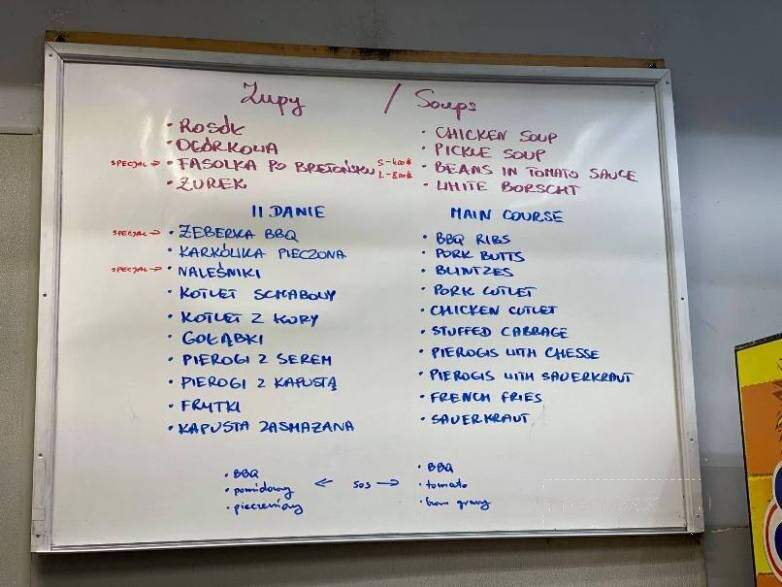 Zupy / Soups
• ROSÓŁ • CHICKEN SOUP
• OGÓRKOWA • PICKLE SOUP
SPECJAL → • FASOLKA PO BRETOŃSKU S-4.00$ L-8.00$ • BEANS IN TOMATO SAUCE
• ŻUREK • WHITE BORSCHT
II DANIE MAIN COURSE
SPECJAL → • ŻEBERKA BBQ • BBQ RIBS
• KARKÓWKA PIECZONA • PORK BUTTS
SPECJAL → • NALEŚNIKI • BLINTZES
• KOTLET SCHABOWY • PORK CUTLET
• KOTLET Z KURY • CHICKEN CUTLET
• GOŁĄBKI • STUFFED CABBAGE
• PIEROGI Z SEREM • PIEROGIS WITH CHESSE
• PIEROGI Z KAPUSTĄ • PIEROGIS WITH SAUERKRAUT
• FRYTKI • FRENCH FRIES
• KAPUSTA ZASMAŻANA • SAUERKRAUT
• BBQ • BBQ
• pomidowy ← SOS → • tomato
• pieczeniowy • gravy